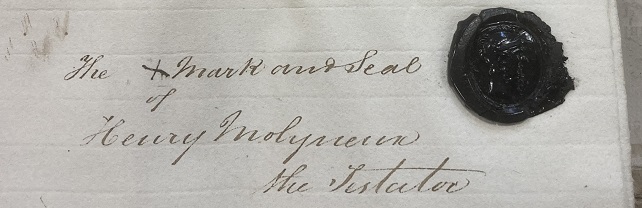 The + Mark and Seal
of
Henry Molyneux
the Testator